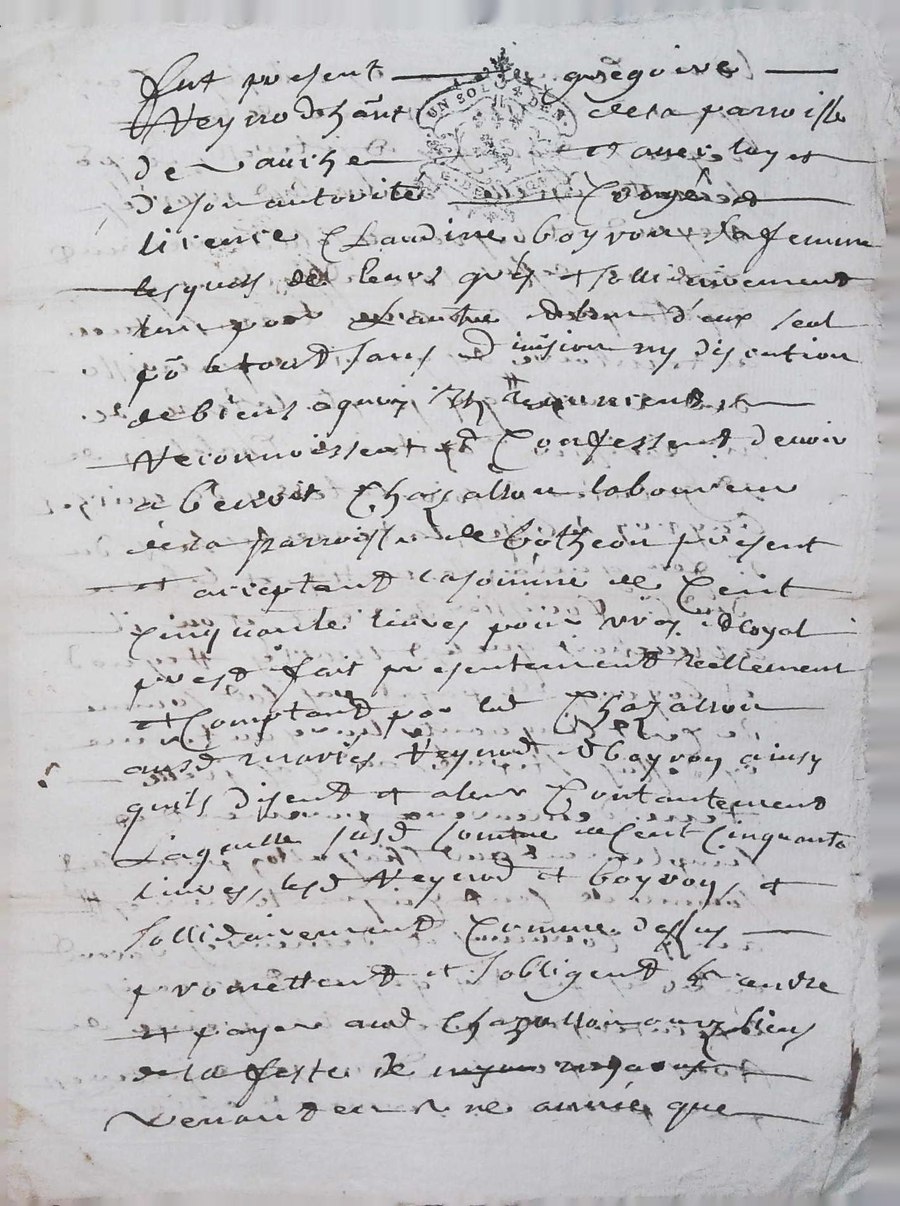 fut present gregoire
Veyrod hãnt de la parroisse
de et avec luy et
de son autorite Congé et
licence Claudine boyron sa femme
lesquels de leurs grés et sollidairement
l'un pour l'autre d'eux seul
po le tout sans division ny discution
de biens a quoy ilz renoncent
Reconnoissent et Confessent devoir
a benoit Chazallon laboureur
de la parroisse de botheon present
et acceptant la somme de Cent
Cinquante livres pour vray et loyal
prest fait presentement reellement
et Comptant par led Chazallon
ausd mariés Veyrod et boyron ainsy
quils disent et a leur Contantement
Laquelle susd somme de Cent Cinquante
livres, lesd Veyrod et boyron, et
sollidairement Comme dessus
promettent et sobligent rendre
et payer aud Chazallon
de la feste de
venant en une année que